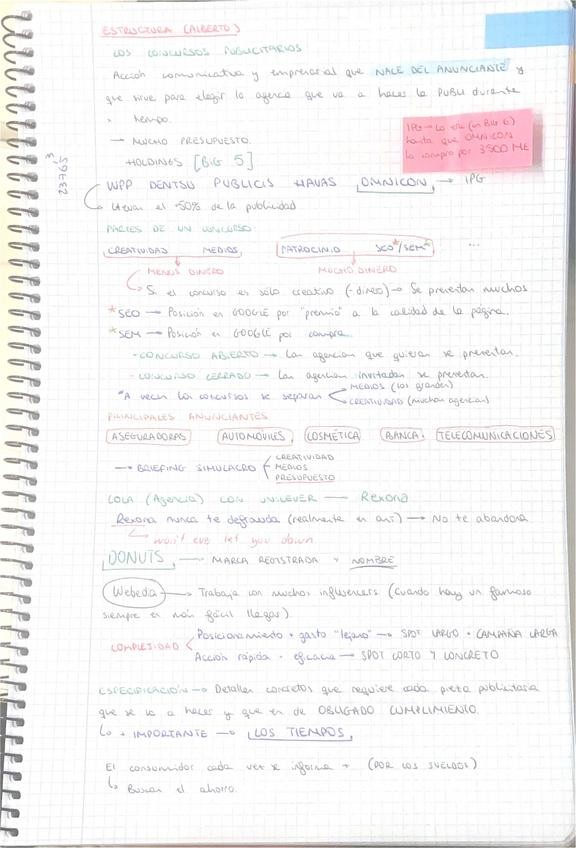 ESTRUCTURA (ALBERTO)
LOS CONCURSOS PUBLICITARIOS
Acción comunicativa y empresarial que NACE DEL ANUNCIANTE y
que sirve para elegir la agencia que va a hacer la PUBLI durante
x tiempo.
→ MUCHO PRESUPUESTO.
HOLDINGS [BIG 5]
IPG → Lo era (un BIG 6)
hasta que OMNICON
la compro por 3500 M€
WPP DENTSU PUBLICIS HAVAS OMNICON → IPG
Llevan el +50% de la publicidad
PARTES DE UN CONCURSO:
CREATIVIDAD MEDIOS PATROCINIO SEO*/SEM* ...
MENOS DINERO MUCHO DINERO
Si el concurso es sólo creativo (-dinero) → Se presentan muchos
*SEO → Posición en GOOGLE por "premio" a la calidad de la página.
*SEM → Posición en GOOGLE por compra.
- CONCURSO ABIERTO → Las agencias que quieran se presentan.
- CONCURSO CERRADO → Las agencias invitadas se presentan.
*A veces los concursos se separan
MEDIOS (los grandes)
CREATIVIDAD (muchas agencias)
PRINCIPALES ANUNCIANTES
ASEGURADORAS AUTOMÓVILES, COSMÉTICA BANCA, TELECOMUNICACIONES
→ BRIEFING SIMULACRO
CREATIVIDAD
MEDIOS
PRESUPUESTO
LOLA (Agencia) CON UNILEVER → Rexona
Rexona nunca te defrauda (realmente es así) → No te abandona
won't ever let you down
DONUTS, → MARCA REGISTRADA + NOMBRE
Webedia → Trabaja con muchos influencers (Cuando hay un famoso
siempre es más fácil llegar)
COMPLEJIDAD
Posicionamiento + gasto "lejano" → SPOT LARGO + CAMPAÑA LARGA
Acción rápida + eficacia → SPOT CORTO Y CONCRETO
ESPECIFICACIÓN → Detalles concretos que requiere cada pieza publicitaria
que se va a hacer y que es de OBLIGADO CUMPLIMIENTO.
↳ + IMPORTANTE → LOS TIEMPOS,
El consumidor cada vez se informa + (POR LOS SUELDOS)
↳ Buscan el ahorro.